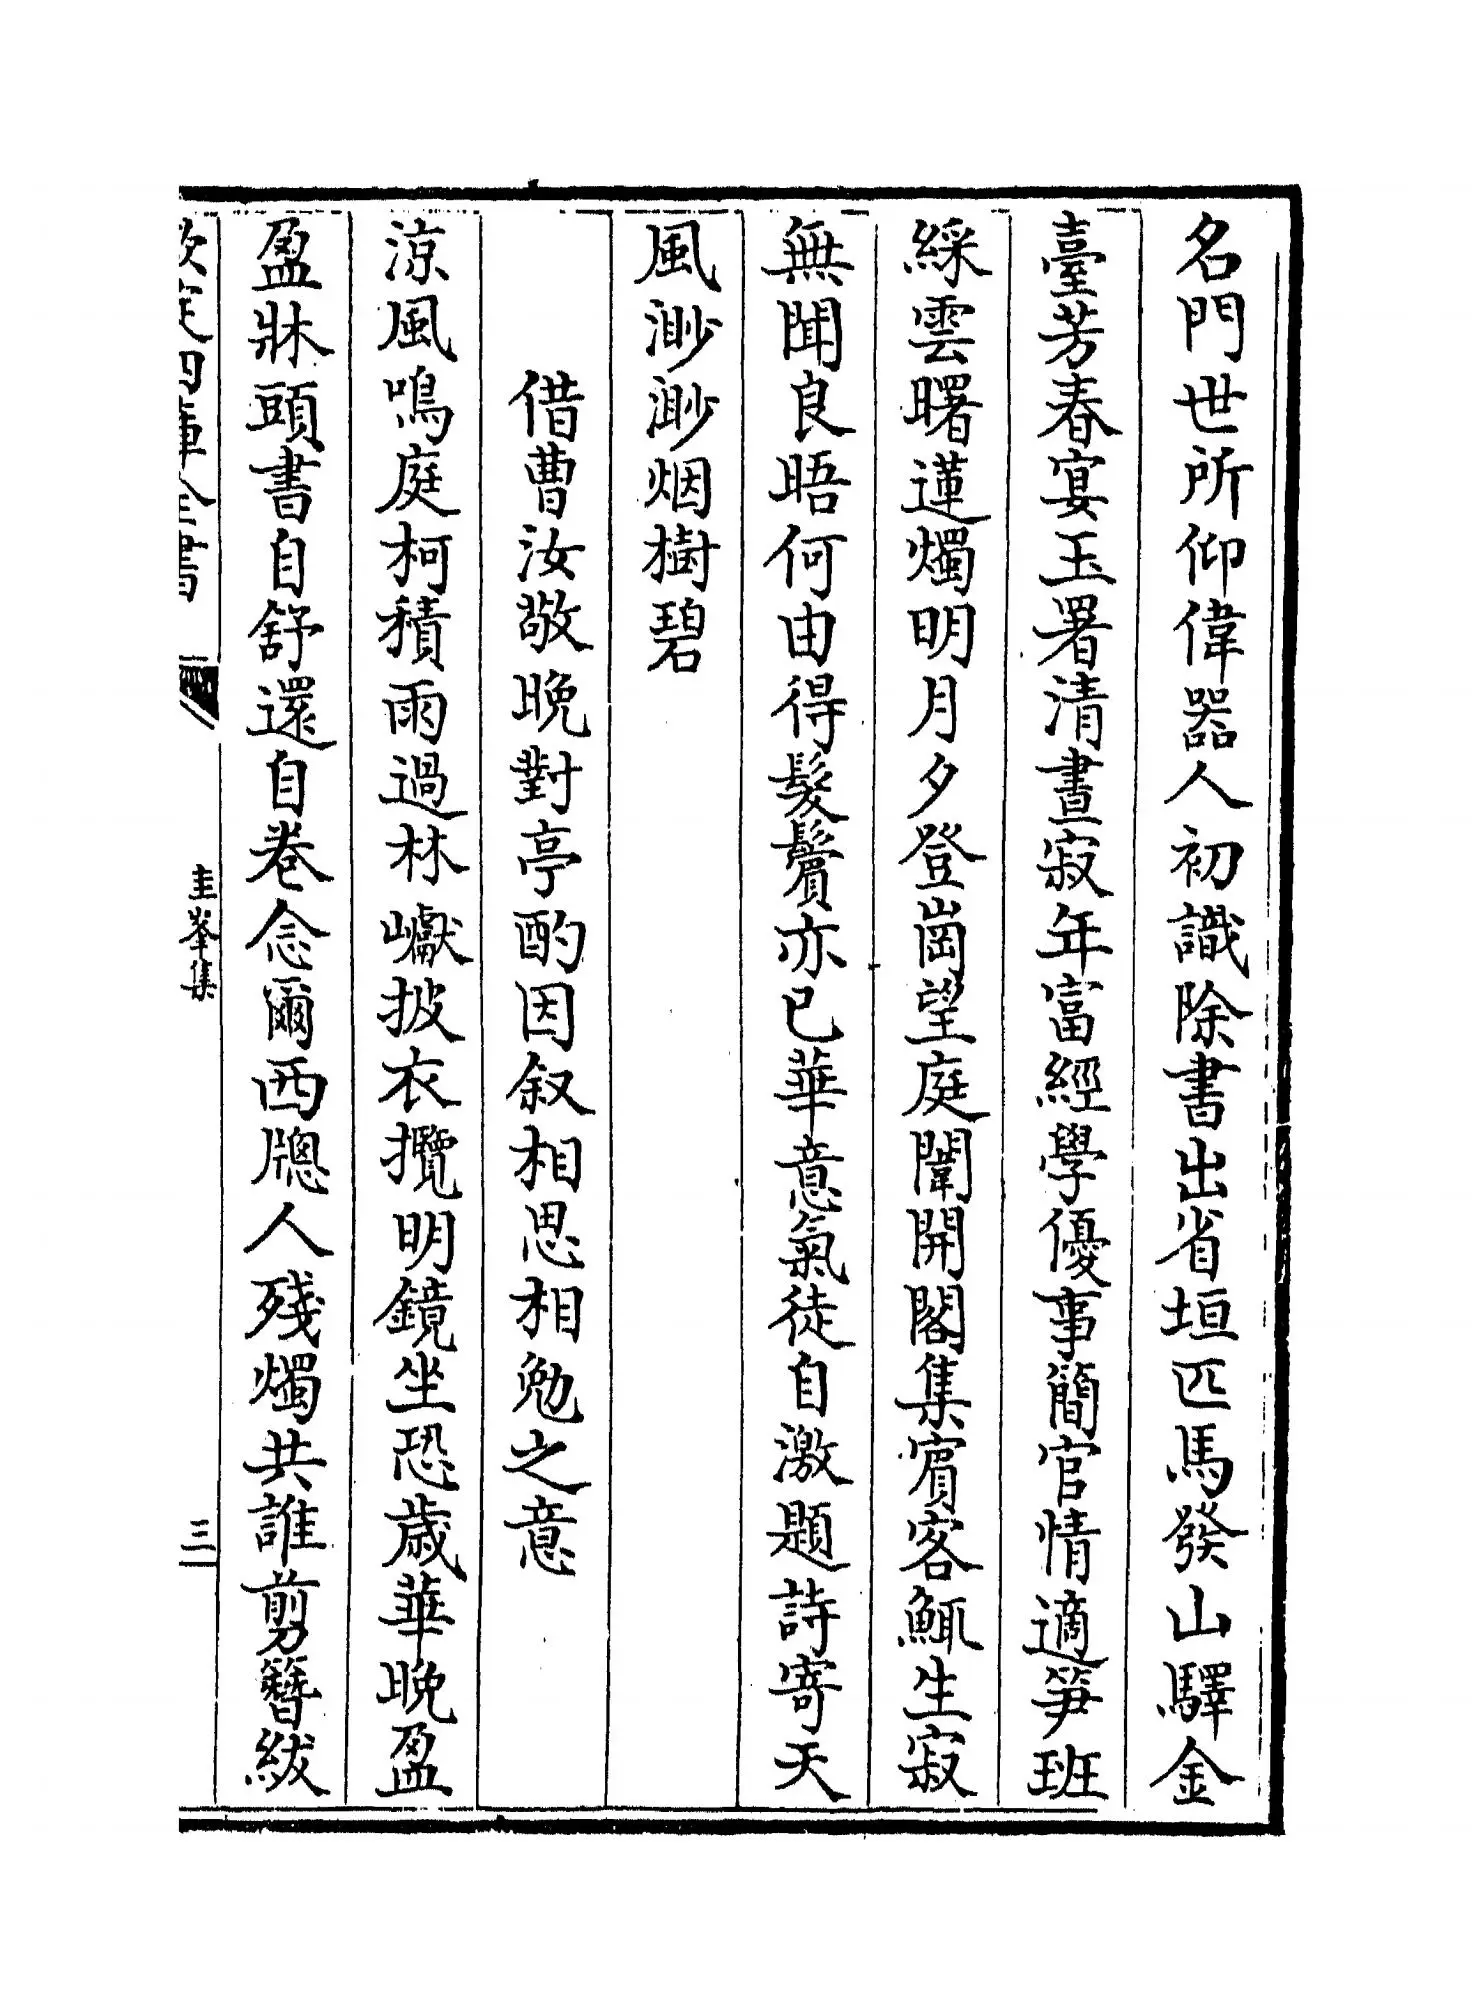 名門世所仰偉器人初識除書出省垣匹馬發山驛金
臺芳春宴玉署清晝寂年富經學優事簡官情適笋班
綵雲曙蓮燭明月夕登崗望庭闈開閣集賓客鯫生寂
無聞良晤何由得髮鬢亦已華意氣徒自激題詩寄天
風渺渺烟樹碧
借曹汝敬晚對亭酌因叙相思相勉之意
涼風鳴庭柯積雨過林巘披衣攬明鏡坐恐歲華晚盈
盈牀頭書自舒還自卷念爾西牕人殘燭共誰剪簪紱
欽定四庫全書
圭峯集
三